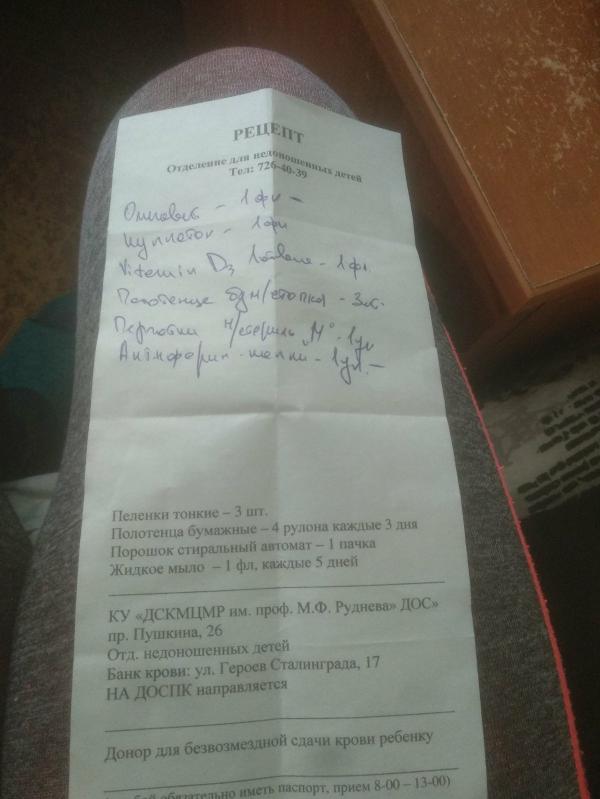 РЕЦЕПТ
Отделение для недоношенных детей
Тел: 726-40-39
- 1 фл -
- 1 фл
Vitamin D3 - 1 фл
Полотенце бум/стопка - 3шт.
Перчатки н/стерил "М" - 1уп
- 1уп. -
Пеленки тонкие – 3 шт.
Полотенца бумажные – 4 рулона каждые 3 дня
Порошок стиральный автомат – 1 пачка
Жидкое мыло – 1 фл, каждые 5 дней
КУ «ДСКМЦМР им. проф. М.Ф. Руднева» ДОС»
пр. Пушкина, 26
Отд. недоношенных детей
Банк крови: ул. Героев Сталинграда, 17
НА ДОСПК направляется
Донор для безвозмездной сдачи крови ребенку
обязательно иметь паспорт, прием 8-00 – 13-00)